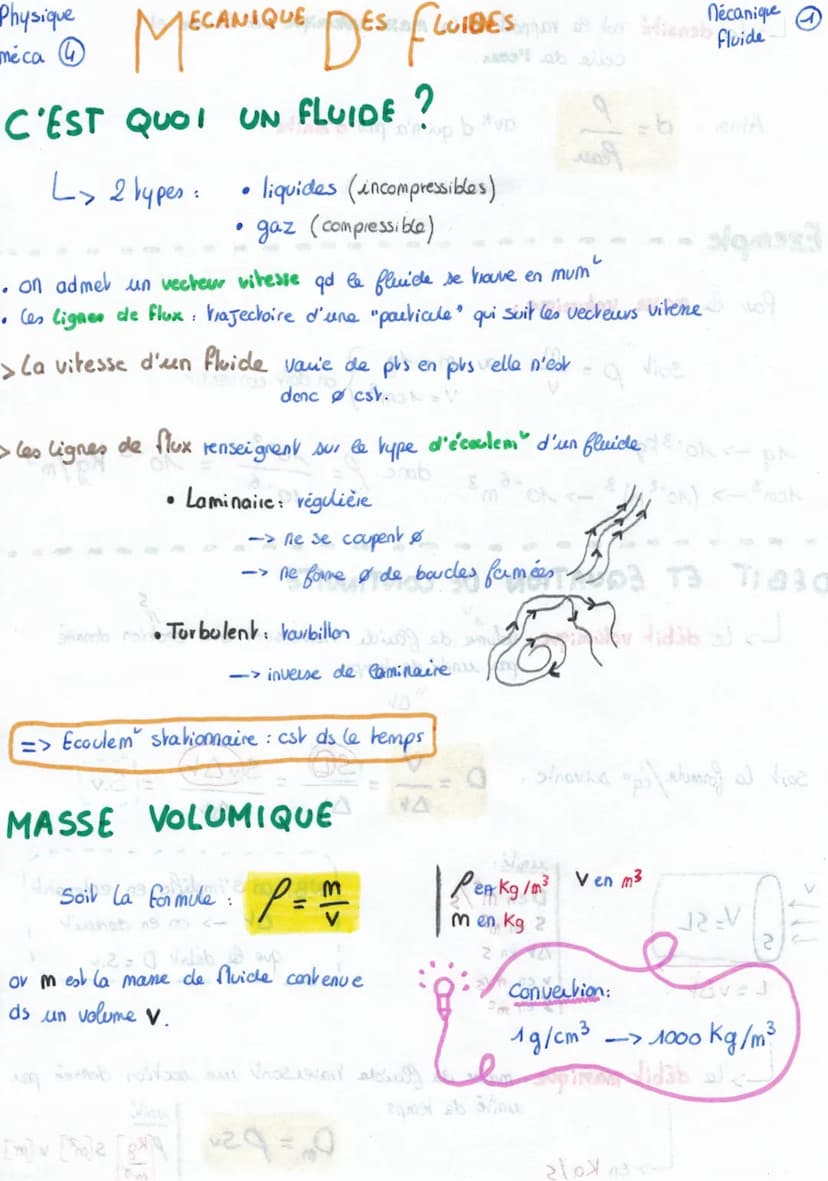 Physique
méca ④
MECANIQUE DES FLUIDES
Mécanique
Fluide
①
C'EST QUOI UN FLUIDE ?
↳ 2 types : • liquides (incompressibles)
• gaz (compressible)
• on admet un vecteur vitesse qd le fluide se trouve en mvmᵗ
• Les lignes de flux : trajectoire d'une "particule" qui suit les vecteurs vitesse
> La vitesse d'un fluide varie de pts en pts elle n'est
donc ø cst.
> Les lignes de flux renseignent sur le type d'écoulemᵗ d'un fluide
• Laminaire : régulière
—> ne se coupent ø
—> ne forme ø de boucles fermées
• Turbulent : tourbillon
—> inverse de laminaire
=> Ecoulemᵗ stationnaire : cst ds le temps
MASSE VOLUMIQUE
Soit la formule : ρ = m/v
ρ en Kg/m³ V en m³
m en Kg
où m est la masse de fluide contenue
ds un volume V.
Convertion :
1g/cm³ —> 1000 Kg/m³